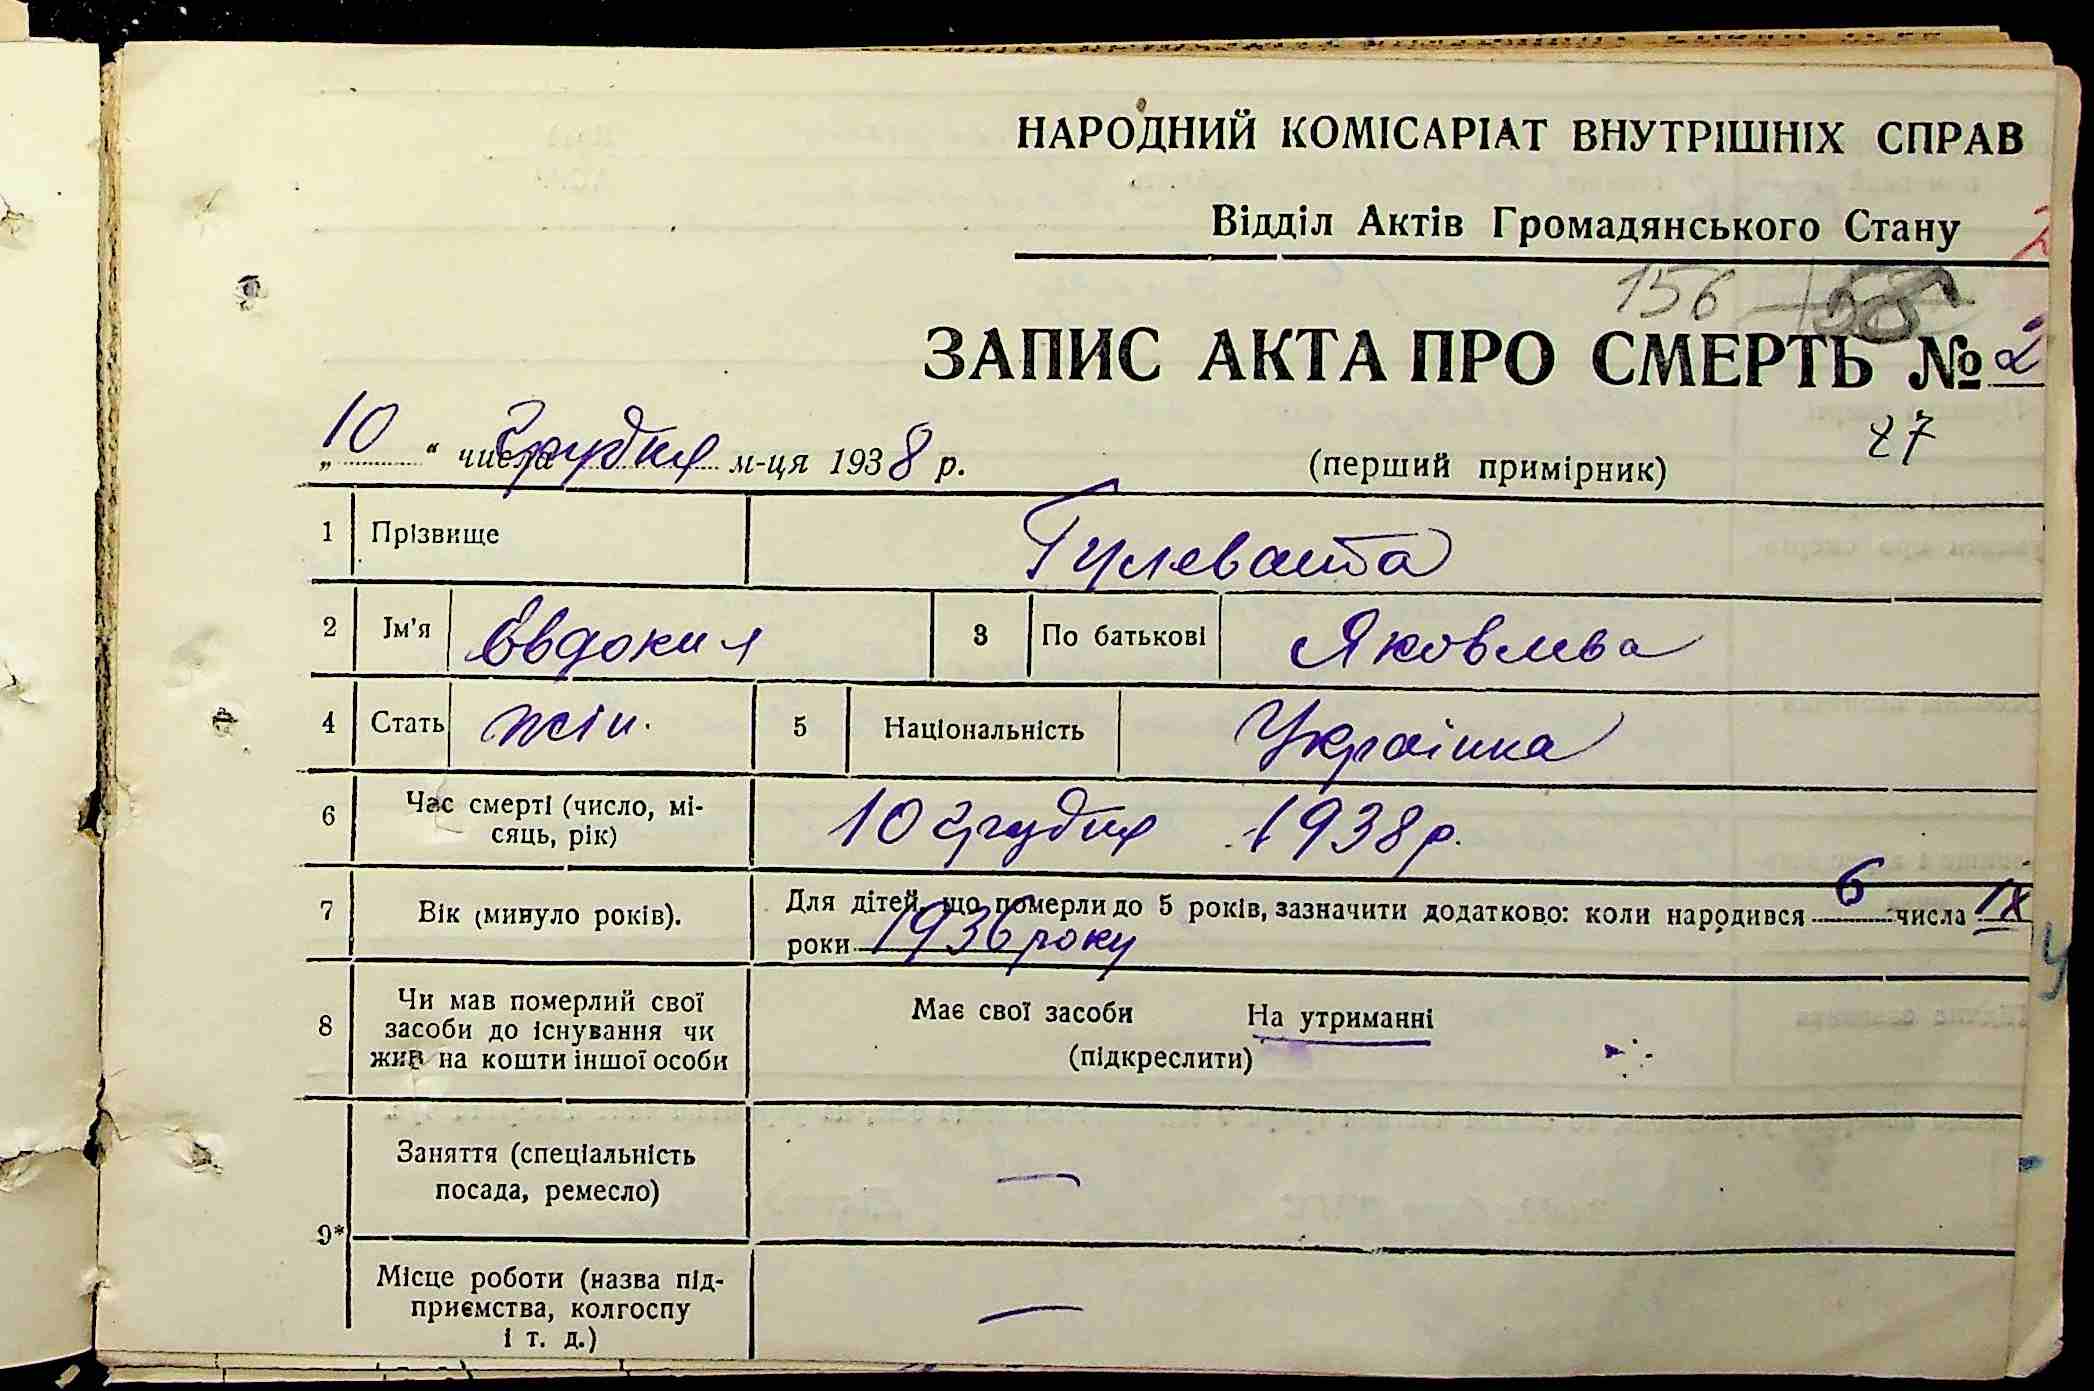 НАРОДНИЙ КОМІСАРІАТ ВНУТРІШНІХ СПРАВ
Відділ Актів Громадянського Стану
156 158
ЗАПИС АКТА ПРО СМЕРТЬ № 2
27
„10“ числа Грудня м-ця 1938 р. (перший примірник)
1 Прізвище Гулевата
2 Ім'я Євдокия 3 По батькові Яковлева
4 Стать жін. 5 Національність Українка
6 Час смерті (число, мі-
сяць, рік) 10 Грудня 1938 р.
7 Вік (минуло років). Для дітей, що померли до 5 років, зазначити додатково: коли народився 6 числа IX
роки 1936 року
8 Чи мав померлий свої
засоби до існування чи
жив на кошти іншої особи
Має свої засоби На утриманні
(підкреслити)
9* Заняття (спеціальність
посада, ремесло) —
Місце роботи (назва під-
приємства, колгоспу
і т. д.) —